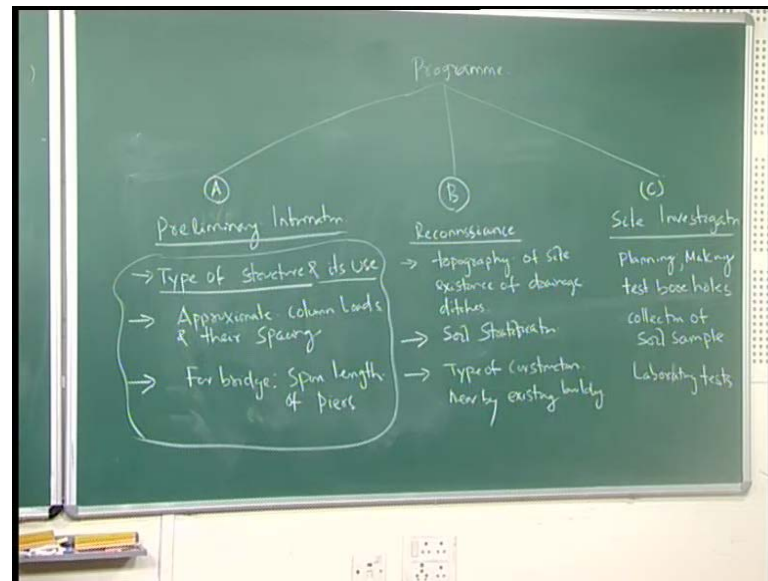 )
Programme.
A
Preliminary Informatn.
→ Type of structure & its use
→ Approximate column loads
& their spacing
→ For bridge: Span length
of piers
B
Reconnssiance
→ topography of site
existence of drainage
ditches
→ Soil Stratificatn
→ Type of construction
near by existing building
(C)
Site Investigatn
Planning, Making
test bore holes
collectn of
Soil Sample
Laboratory tests